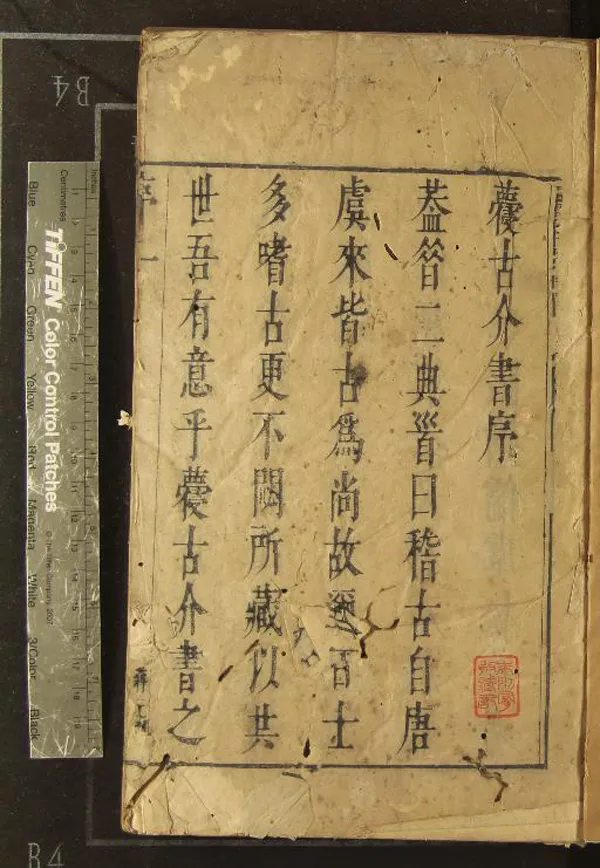 古介書序
葢二典首曰稽古自唐
虞來皆古爲尚故士
多嗜古更不閟所藏以共
世吾有意乎古介書之
序 一
Inches
Centimetres
TIFFEN Color Control Patches
© The Tiffen Company, 2007
Blue
Cyan
Green
Yellow
Red
Magenta
White
3/Color
Black
B4
B4